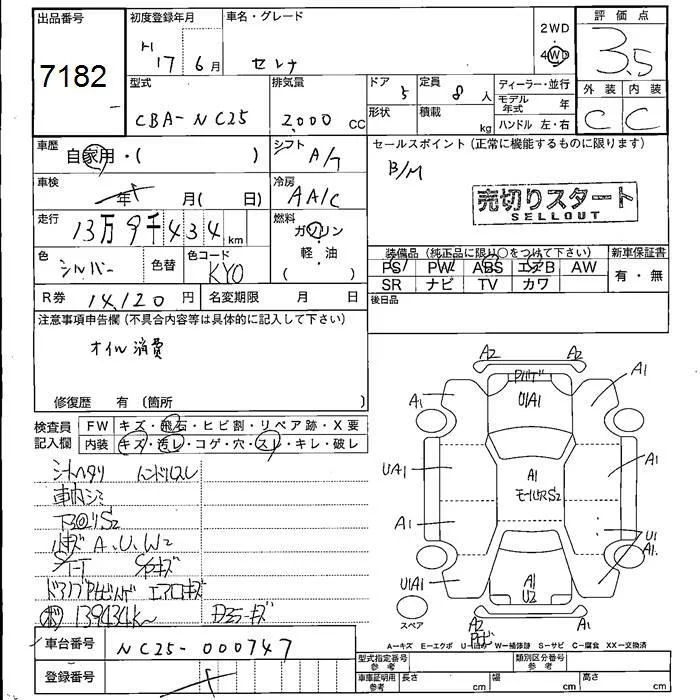 出品番号 初度登録年月 車名・グレード 2WD 評価点
7182 H 17 6月 セレナ 4WD 3.5
型式 排気量 ドア 5 定員 8 人 ディーラー・並行 外装 内装
CBA-NC25 2,000 CC 形状 積載 kg モデル年式 年 C C
ハンドル 左・右
車歴 自家用・( ) シフト A/T セールスポイント (正常に機能するものに限ります)
B/M
車検 年 月( 日) 冷房 AA/C 売切りスタート
SELLOUT
走行 13万9千434km 燃料 ガソリン・軽油( )
装備品 (純正品に限り○をつけて下さい) 新車保証書
色 シルバー 色替 色コード KY0 PS PW ABS エアB AW 有・無
SR ナビ TV カワ
R券 14,120円 名変期限 月 日 後日品
注意事項申告欄 (不具合内容等は具体的に記入して下さい)
オイル消費
修復歴 有 (箇所 )
検査員記入欄 FW キズ・飛石・ヒビ割・リペア跡・X要
内装 キズ・汚レ・コゲ・穴・スレ・キレ・破レ
シートヘタリ ハンドルスレ
車内シミ
小キズ A、U、W2
エアロキズ
139434k~
A2 A2
A1 U1A1 A1
UA1 A1 A1
A1 U1
A1
U1A1 A1
U2
A2 A1
スペア
A-キズ E-エクボ U-凹リ W-補修跡 S-サビ C-腐食 XX-交換済
車台番号 NC25-000747 型式指定番号 参考 類別区分番号 参考
登録番号 車庫証明用 参考 長さ cm 幅 cm 高さ cm